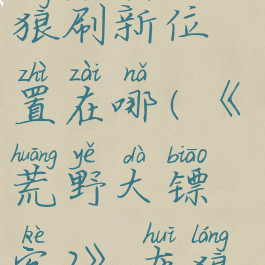 狼刷新位
zhì zài nǎ
置在哪(《
huāng yě dà biāo
荒野大镖
kè huī láng
客2》灰狼